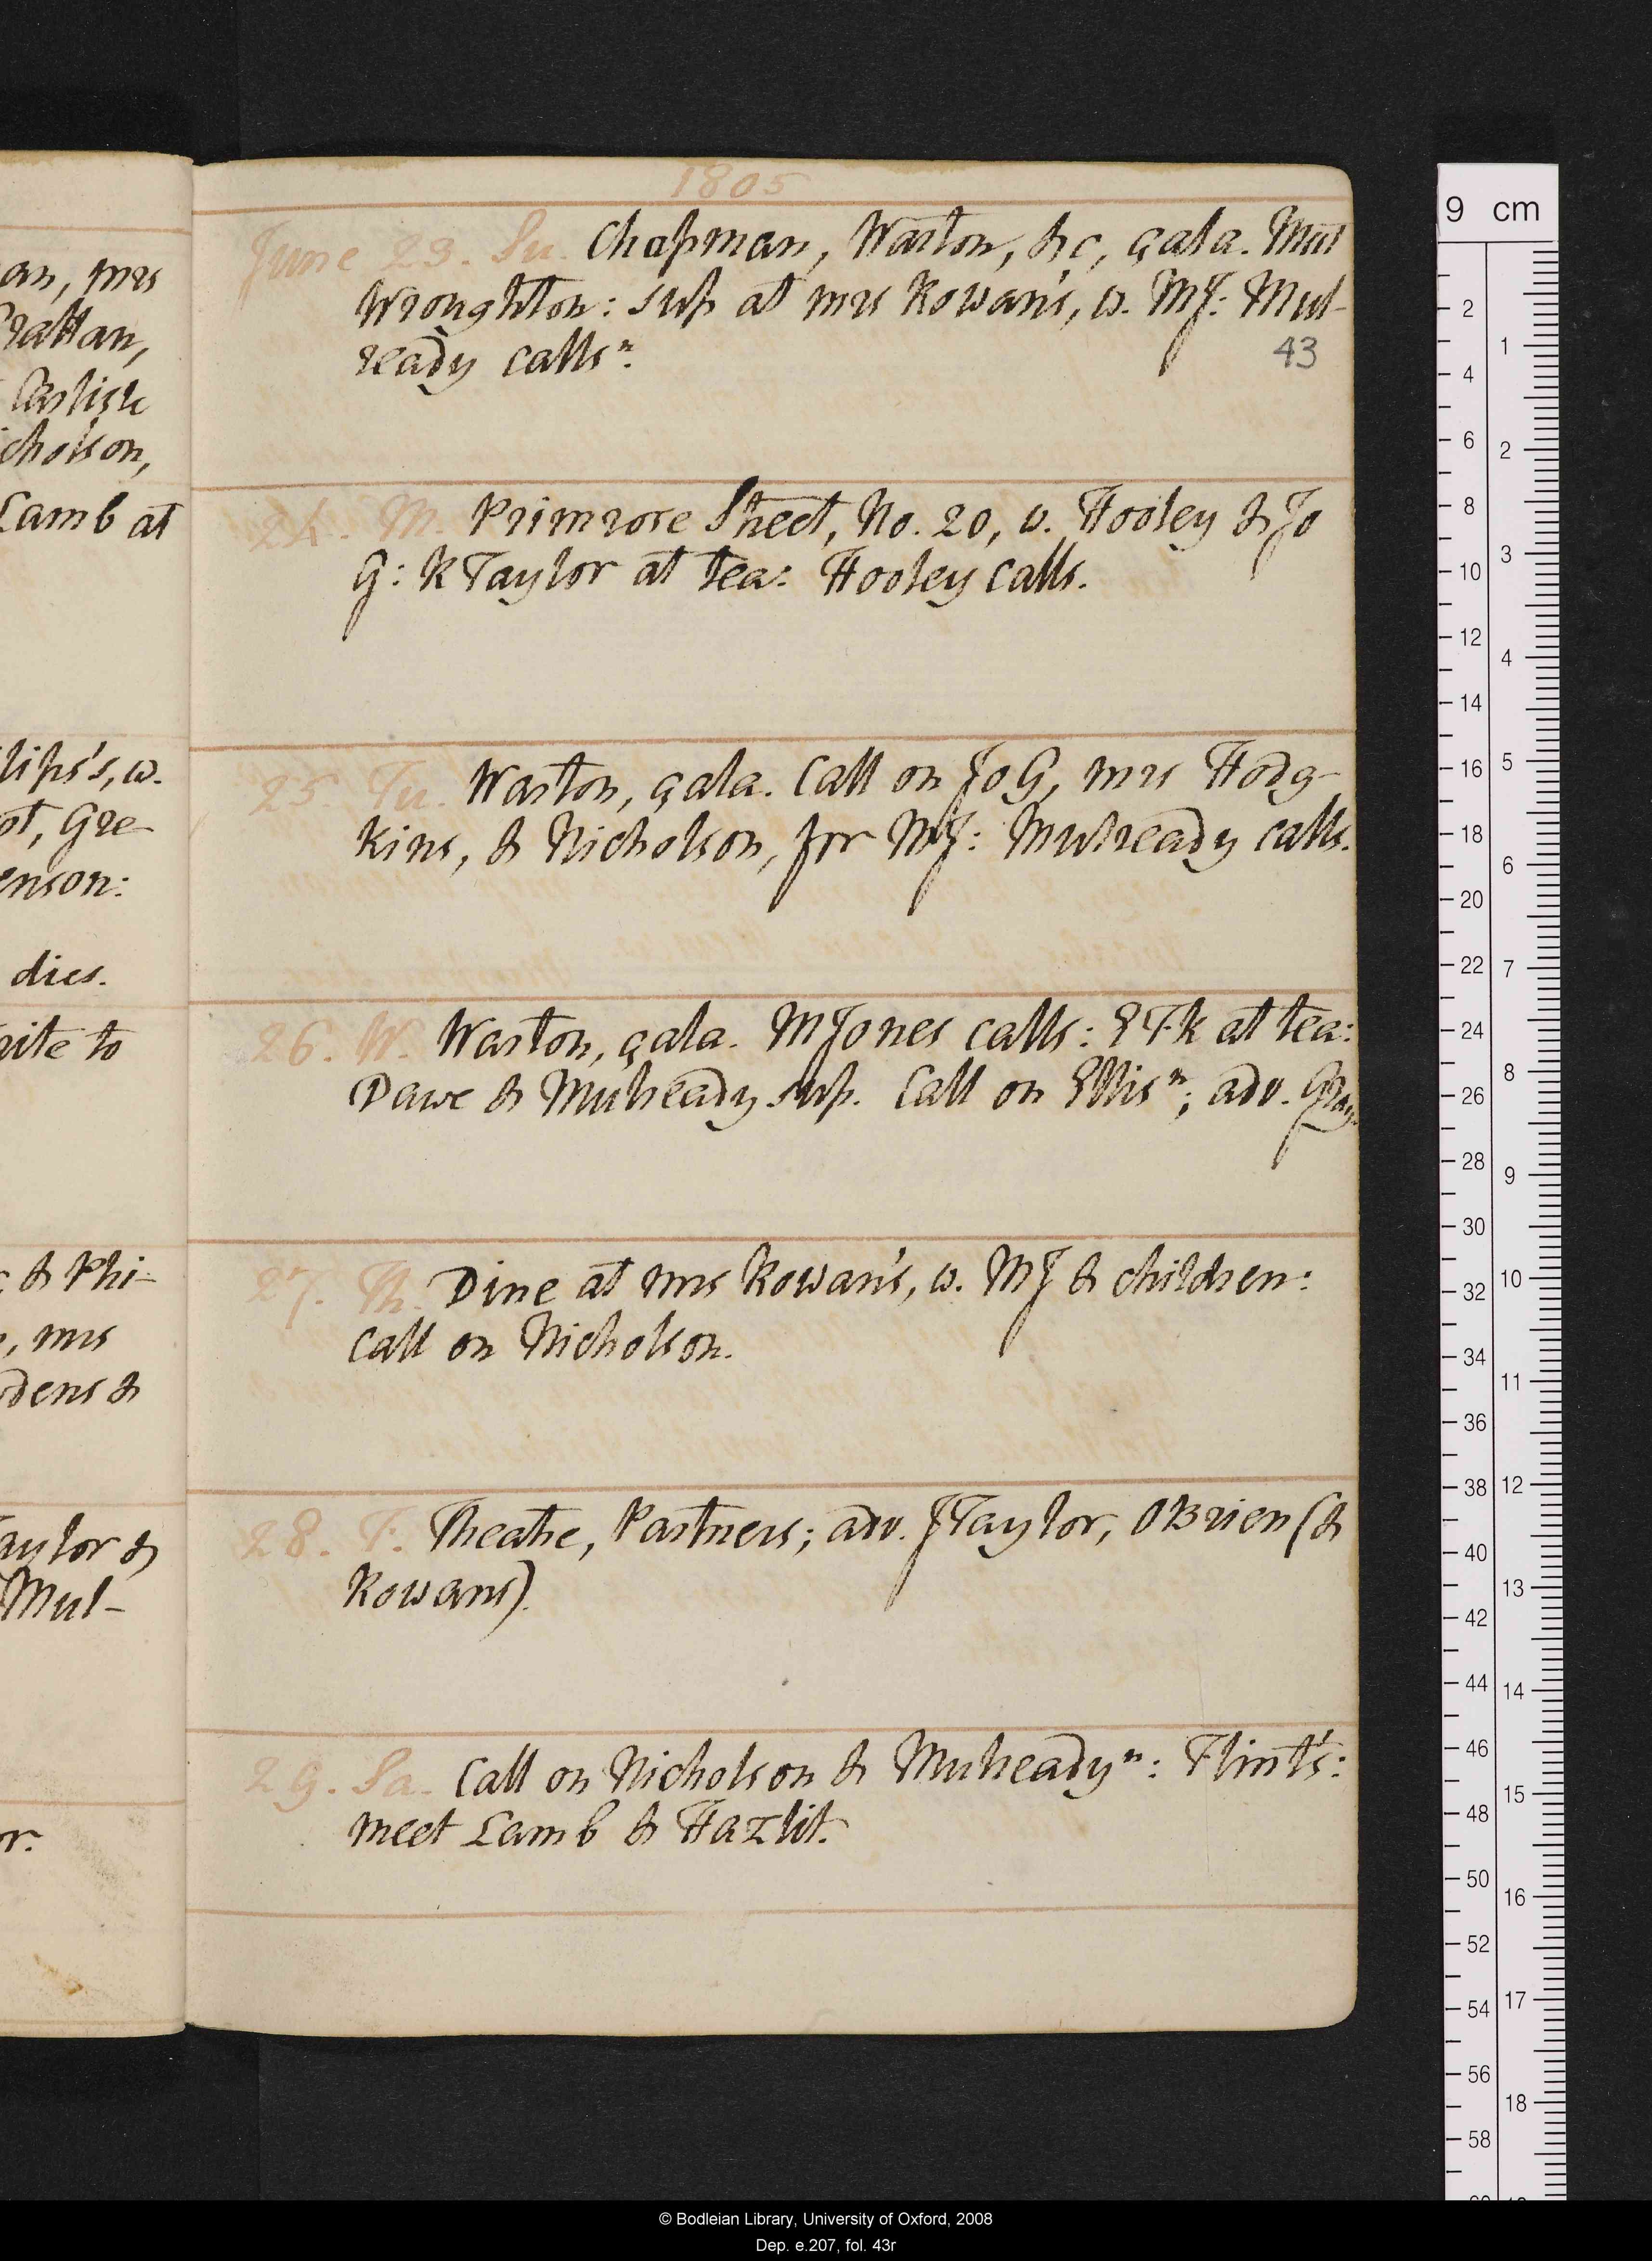 1805
June 23. Su. Chapman, Warton, &c, çala. Meet
Wroughton: sup at mrs Rowan's, w. MJ: Mul-
ready callsⁿ.
43
24. M. Primrose Street, No. 20, w. Hooley & Jo
G: R Taylor at tea: Hooley calls.
25. Tu. Warton, çala. Call on Jo G, mrs Hodg-
kins, & Nicholson, for MJ: Mulready calls.
26. W. Warton, çala. M Jones calls: ETK at tea:
Dawe & Mulready sup. Call on Ellisⁿ; adv. Gray.
27. Th. Dine at mrs Rowan's, w. MJ & children:
call on Nicholson.
28. F. Theatre, Partners; adv. J Taylor, OBrien (&
Rowans).
29. Sa. Call on Nicholson & Mulreadyⁿ: Flint's:
meet Lamb & Hazlit.
an, mrs
rattan,
Carlisle
icholson,
Lamb at
lips's, w.
ot, Gre-
enson:
dies.
rite to
& Phi-
, mrs
dens &
aylor &
Mul-
or.
9 cm
2
4
6
8
10
12
14
16
18
20
22
24
26
28
30
32
34
36
38
40
42
44
46
48
50
52
54
56
58
1
2
3
4
5
6
7
8
9
10
11
12
13
14
15
16
17
18
© Bodleian Library, University of Oxford, 2008
Dep. e.207, fol. 43r